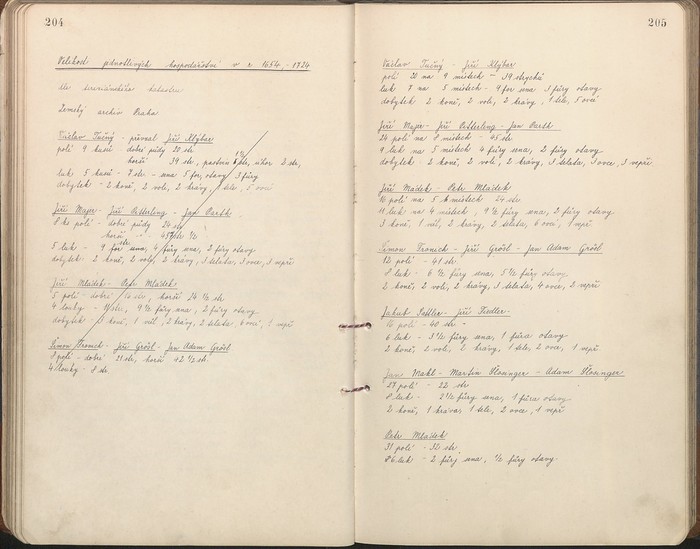 204
Velikost jednotlivých hospodářství v r. 1654, - 1724
dle tereziánského katastru
Zemský archiv Praha
Václav Tučný - převzal Jiří Klýbar
polí 9 kusů - dobré půdy 20 str.
horší 39 str, pastvin 6 str, úhor 2 str,
luk 5 kusů - 7 str - sena 5 for, otavy 3 fůry
dobytek - 2 koně, 2 voli, 2 krávy, 1 tele, 5 ovcí
Jiří Majer - Jiří Österling - Jan Barth
8 ks polí - dobré půdy 24 str
horší " - 45 str ½
5 luk - 9 str sena, 4 fůry sena, 2 fůry otavy
dobytek 2 koně, 2 voly, 2 krávy, 3 telata, 3 ovce, 3 vepři
Jiří Mládek - Petr Mládek
5 polí - dobré str, horší 24 ½ str
4 louky - 11 str, 9 ½ fůry sna, 2 fůry otavy
dobytek 3 koně, 1 vůl, 2 krávy, 2 telata, 6 ovcí, 1 vepř
Šimon Franich - Jiří Grösl - Jan Adam Grösl
8 polí - dobré 21 str, horší 42 ½ str.
4 louky - 8 str
205
Václav Tučný - Jiří Klýbar
polí 20 na 9 místech - 59 strychů
luk 7 na 5 místech - 9 for sena 3 fůry otavy
dobytek 2 koně, 2 voli, 2 krávy, 1 tele, 5 ovcí
Jiří Majer - Jiří Österling - Jan Barth
24 polí na 8 místech - 45 str
9 luk na 5 místech 4 fůry sena, 2 fůry otavy
dobytek - 2 koně, 2 voli, 2 krávy, 3 telata, 3 ovce, 3 vepři
Jiří Mádek - Petr Mládek
16 polí na 5 místech 24 str
11 luk na 4 místech, 9 ½ fůry sna, 2 fůry otavy
3 koně, 1 vůl, 2 krávy, 2 telata, 6 ovcí, 1 vepř
Šimon Franich - Jiří Grösl - Jan Adam Grösl
12 polí - 41 str
8 luk - 6 ½ fůry sna, 5 ½ fůry otavy
2 koně, 2 voli, 2 krávy, 3 telata, 4 ovce, 2 vepři
Jakub Settler - Jiří Fiedler
16 polí - 40 str
6 luk - 3 ½ fůry sna, 1 fůra otavy
2 koně, 2 voli, 2 krávy, 1 tele, 2 ovce, 1 vepř
Jan Wahl - Martin Slosinger - Adam Slosinger
27 polí - 22 str
8 luk - 2 ½ fůry sena, 1 fůra otavy
2 koně, 1 kráva, 1 tele, 2 ovce, 1 vepř
Petr Mládek
31 polí - 32 str
86 luk - 2 fůry sena, ½ fůry otavy